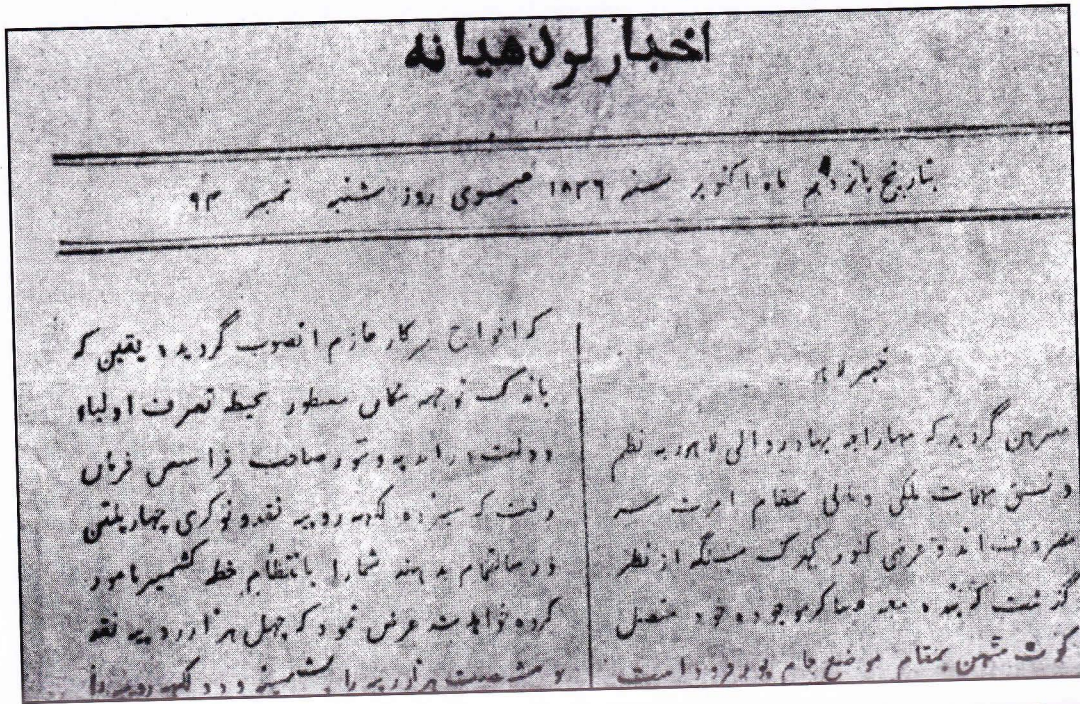 اخبار لودهیانه
بتاریخ یازدهم ماه اکتوبر سنه ۱۸۳۶ عیسوی روز شنبه نمبر ۹۴
خبر لاهور
گردید که مهاراجه بهادر والی لاهور به نظم
و نسق مهمات ملکی و مالی بمقام امرت سر
مصروف اند و عرضی کنور کهرک سنگه از نظر
گذشت که بنده معه عساکر موجوده خود متصل
بمقام موضع جام پور فرود است
که افواج سرکار عازم انصوب گردیده یقین که
باندک توجه مکان مسطور بحیطه تصرف اولیاء
دولت در آید و نور صاحب فراسیس فرمان
رفت که سیزده لکهه روپیه نقد و نوکری چهار پلتن
شما را بانتظام خطه کشمیر مامور
کرده خواهد شد عرض نمود که چهل هزار روپیه نقد
و هزار روپیه را پشمینه و دو لکهه روپیه